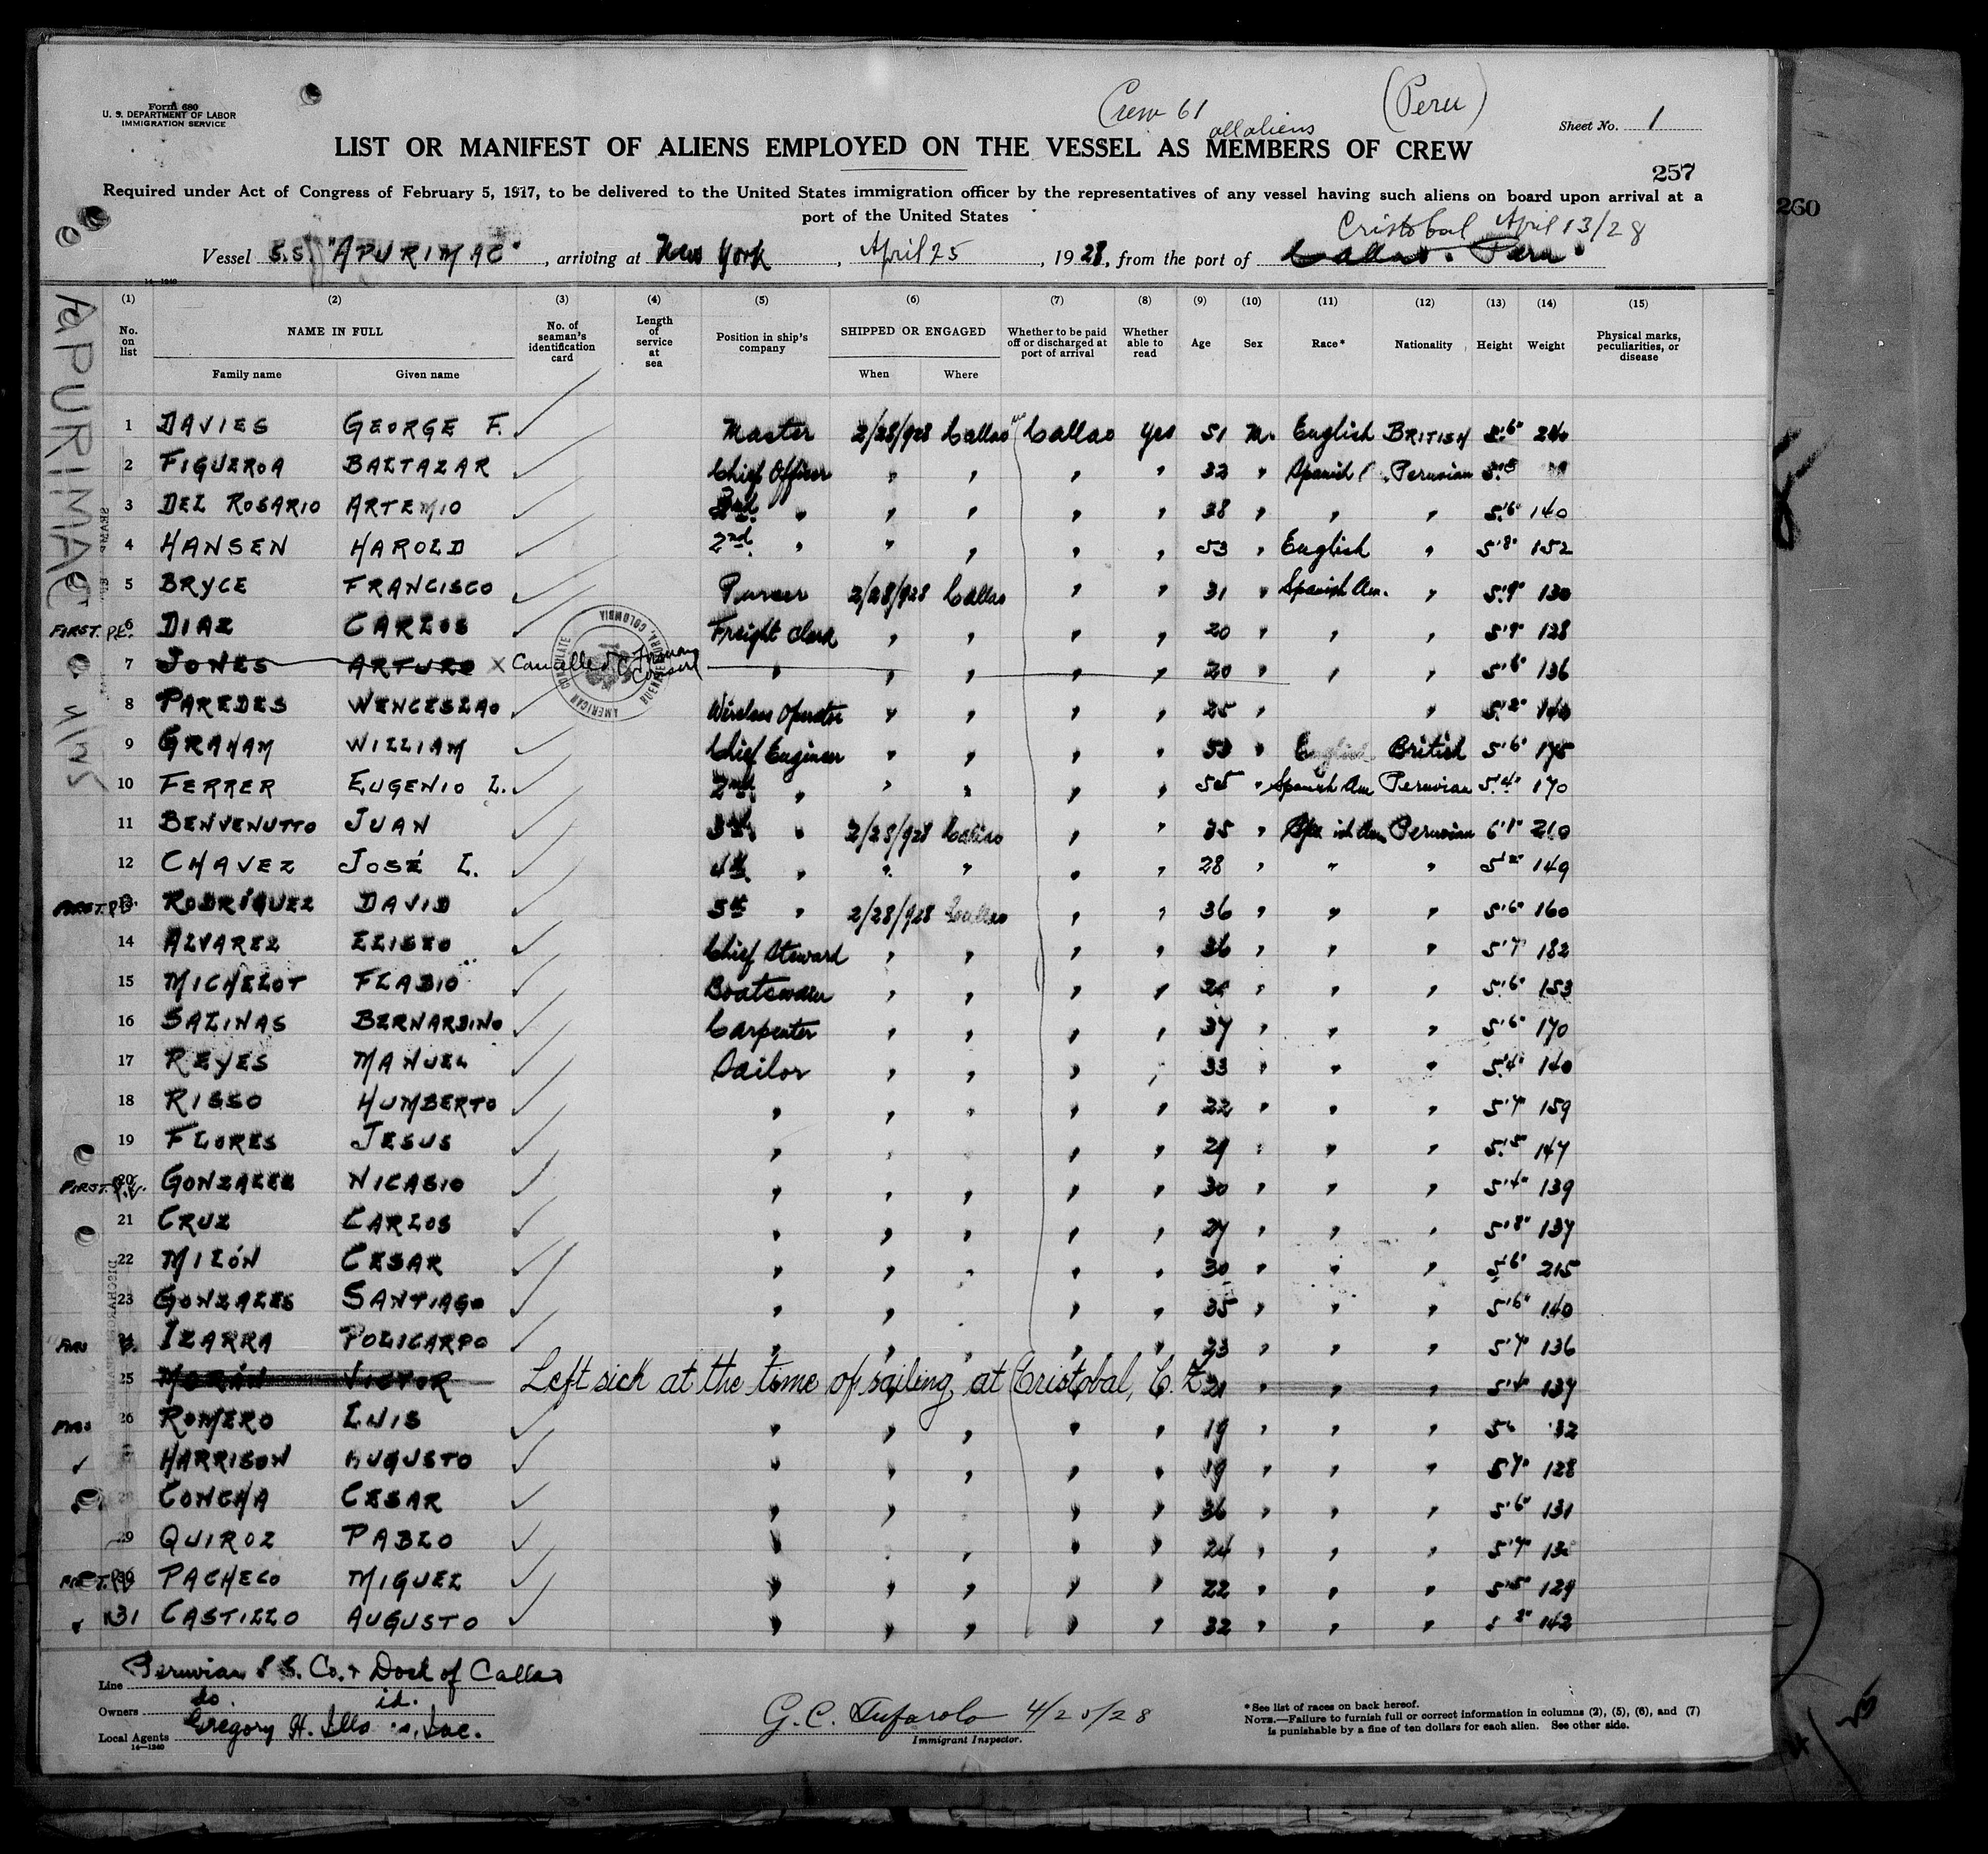 Form 680
U. S. DEPARTMENT OF LABOR
IMMIGRATION SERVICE
Crew 61
all aliens
(Peru)
Sheet No. 1
LIST OR MANIFEST OF ALIENS EMPLOYED ON THE VESSEL AS MEMBERS OF CREW
257
260
Required under Act of Congress of February 5, 1917, to be delivered to the United States immigration officer by the representatives of any vessel having such aliens on board upon arrival at a
port of the United States
Cristobal April 13/28
Vessel S.S. "APURIMAC", arriving at New York, April 25, 1928, from the port of Callao. Peru.
14-1240
APURIMAC
(1) (2) (3) (4) (5) (6) (7) (8) (9) (10) (11) (12) (13) (14) (15)
No. on list
NAME IN FULL
Family name Given name
No. of seaman's identification card
Length of service at sea
Position in ship's company
SHIPPED OR ENGAGED
When Where
Whether to be paid off or discharged at port of arrival
Whether able to read
Age Sex Race* Nationality Height Weight
Physical marks, peculiarities, or disease
1 DAVIES GEORGE F. Master 2/28/928 Callao Callao yes 51 M. English BRITISH 240
2 FIGUEROA BALTAZAR Chief Officer " " " " 32 " Spanish Peruvian 5'5"
3 DEL ROSARIO ARTEMIO " " " " " 38 " " " 5'6" 140
4 HANSEN HAROLD 2nd " " " " " 53 " English " 5'8" 152
5 BRYCE FRANCISCO Purser 2/28/928 Callao " " 31 " Spanish Am. " 5'9" 130
FIRST. P.E. 6 DIAZ CARLOS Freight Clerk " " " " 20 " " " 5'9" 128
7 JONES ARTURO X Cancelled Consul " " " " " 20 " " " 5'6" 136
AMERICAN CONSULATE BUENAVENTURA, COLOMBIA
8 PAREDES WENCESLAO Wireless Operator " " " " 25 " " 5'2" 140
9 GRAHAM WILLIAM Chief Engineer " " " " 53 " English British 5'6" 175
10 FERRER EUGENIO L. 2nd " " " " " 55 " Spanish Am Peruvian 5'4" 170
11 BENVENUTTO JUAN 3rd " 2/28/928 Callao " " 35 " Am Peruvian 6'1" 210
12 CHAVEZ JOSÉ L. 4th " " " " " 28 " " " 149
FIRST. P.E. 13 RODRÍGUEZ DAVID 5th " 2/28/928 Callao " " 36 " " " 5'6" 160
14 ALVAREZ ELISEO Chief Steward " " " " 36 " " " 5'7" 182
15 MICHELOT FLABIO Boatswain " " " " " " " 5'6" 153
16 SALINAS BERNARDINO Carpenter " " " " 37 " " " 5'6" 170
17 REYES MANUEL Sailor " " " " 33 " " " 5'4" 140
18 RISSO HUMBERTO " " " " " 22 " " " 5'7" 159
19 FLORES JESUS " " " " " 29 " " " 5'5" 147
FIRST. 20 GONZALEZ NICASIO " " " " " 30 " " " 5'4" 139
21 CRUZ CARLOS " " " " " 27 " " " 5'8" 137
22 MILÓN CESAR " " " " " 30 " " " 5'6" 215
23 GONZALES SANTIAGO " " " " " 35 " " " 5'6" 140
IZARRA POLICARPO " " " " " 23 " " " 5'7" 136
25 MORÁN VICTOR Left sick at the time of sailing, at Cristobal, C. Z. 21 " " " 137
26 ROMERO LUIS " " " " " 19 " " "
HARRISON AUGUSTO " " " " " 19 " " " 5'7" 128
CONCHA CESAR " " " " 36 " " " 5'6" 131
29 QUIROZ PABLO " " " " 24 " " " 5'7"
FIRST. PACHECO MIGUEL " " " " " 22 " " " 5'5" 129
31 CASTILLO AUGUSTO " " " " " 32 " " " 142
Line Peruvian S S. Co. & Dock of Callao
Owners do. id.
Local Agents Gregory H. Inc.
14-1240
G. C. Tufarolo 4/25/28
Immigrant Inspector.
* See list of races on back hereof.
NOTE.—Failure to furnish full or correct information in columns (2), (5), (6), and (7)
is punishable by a fine of ten dollars for each alien. See other side.